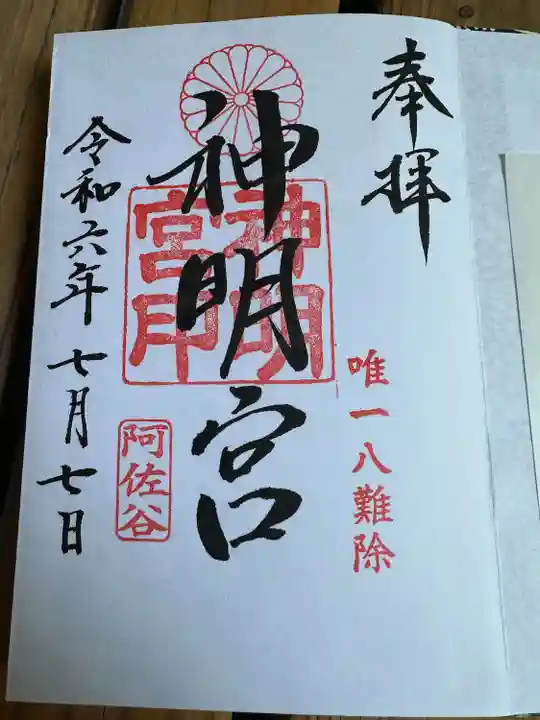 奉拝
唯一八難除
神明宮
神明宮印
阿佐谷
令和六年七月七日